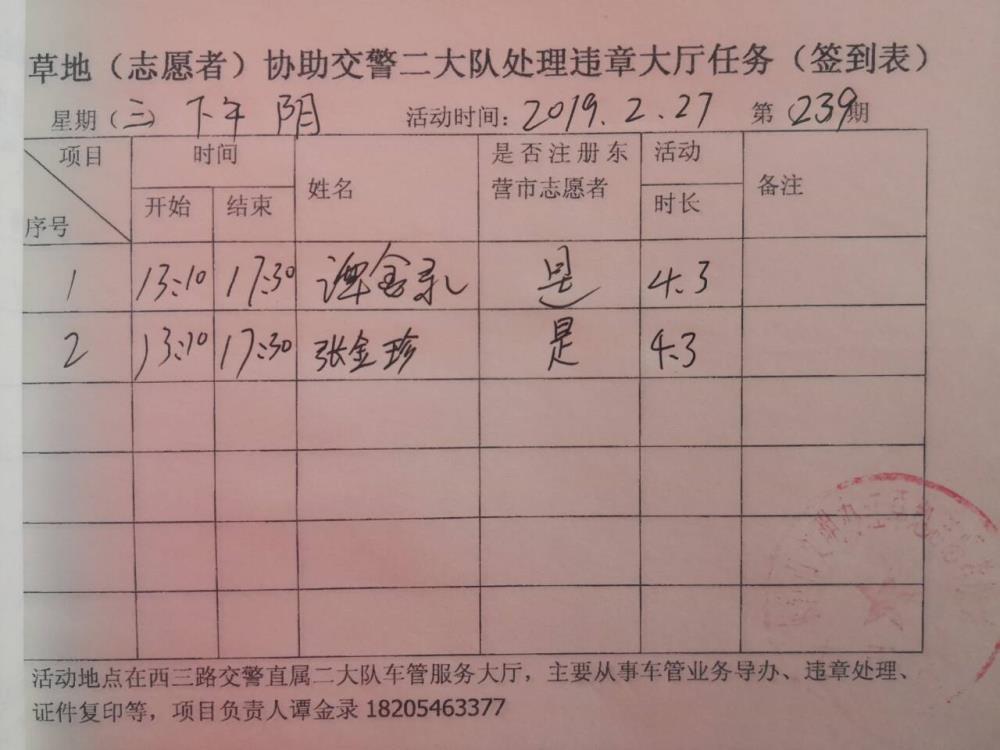 草地（志愿者）协助交警二大队处理违章大厅任务（签到表）
星期（三） 下午 阴 活动时间：2019.2.27 第（239）期
项目 时间 姓名 是否注册东营市志愿者 活动时长 备注
序号 开始 结束
1 13:10 17:30 谭金录 是 4.3
2 13:10 17:30 张金珍 是 4.3
活动地点在西三路交警直属二大队车管服务大厅，主要从事车管业务导办、违章处理、
证件复印等，项目负责人谭金录 18205463377